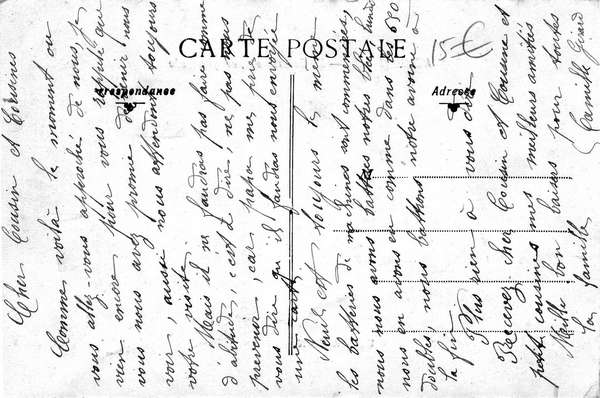 CARTE POSTALE
15€
Correspondance
Adresse
Cher Cousin et Cousines
Comme voilà le moment ou
vous allez-vous approché de nous, je
vien encore pour vous rappelé que
vous nous avez promie de venir nous
voir, aussi nous attendons toujours
votre visite.
Mais il ne faudrais pas faire comme
d'abitudes, c'est a dire, ne pas nous
prevenir, car papa m'es prie de
vous dire qu'il faudras nous envoyer
une carte.
Neuls est toujours la même
les batteries de machines sont commencées,
nous nous avons battus notres blés, lundi
nous en avons eu comme dans les 650
doubles, nous battrons notre avoine à
la fin
Plus rien à vous dire
Recevez cher Cousin et Cousine et
petit cousines mes meilleurs amitiés
Mille bon baisers pour toutes
la famille Camille Girard